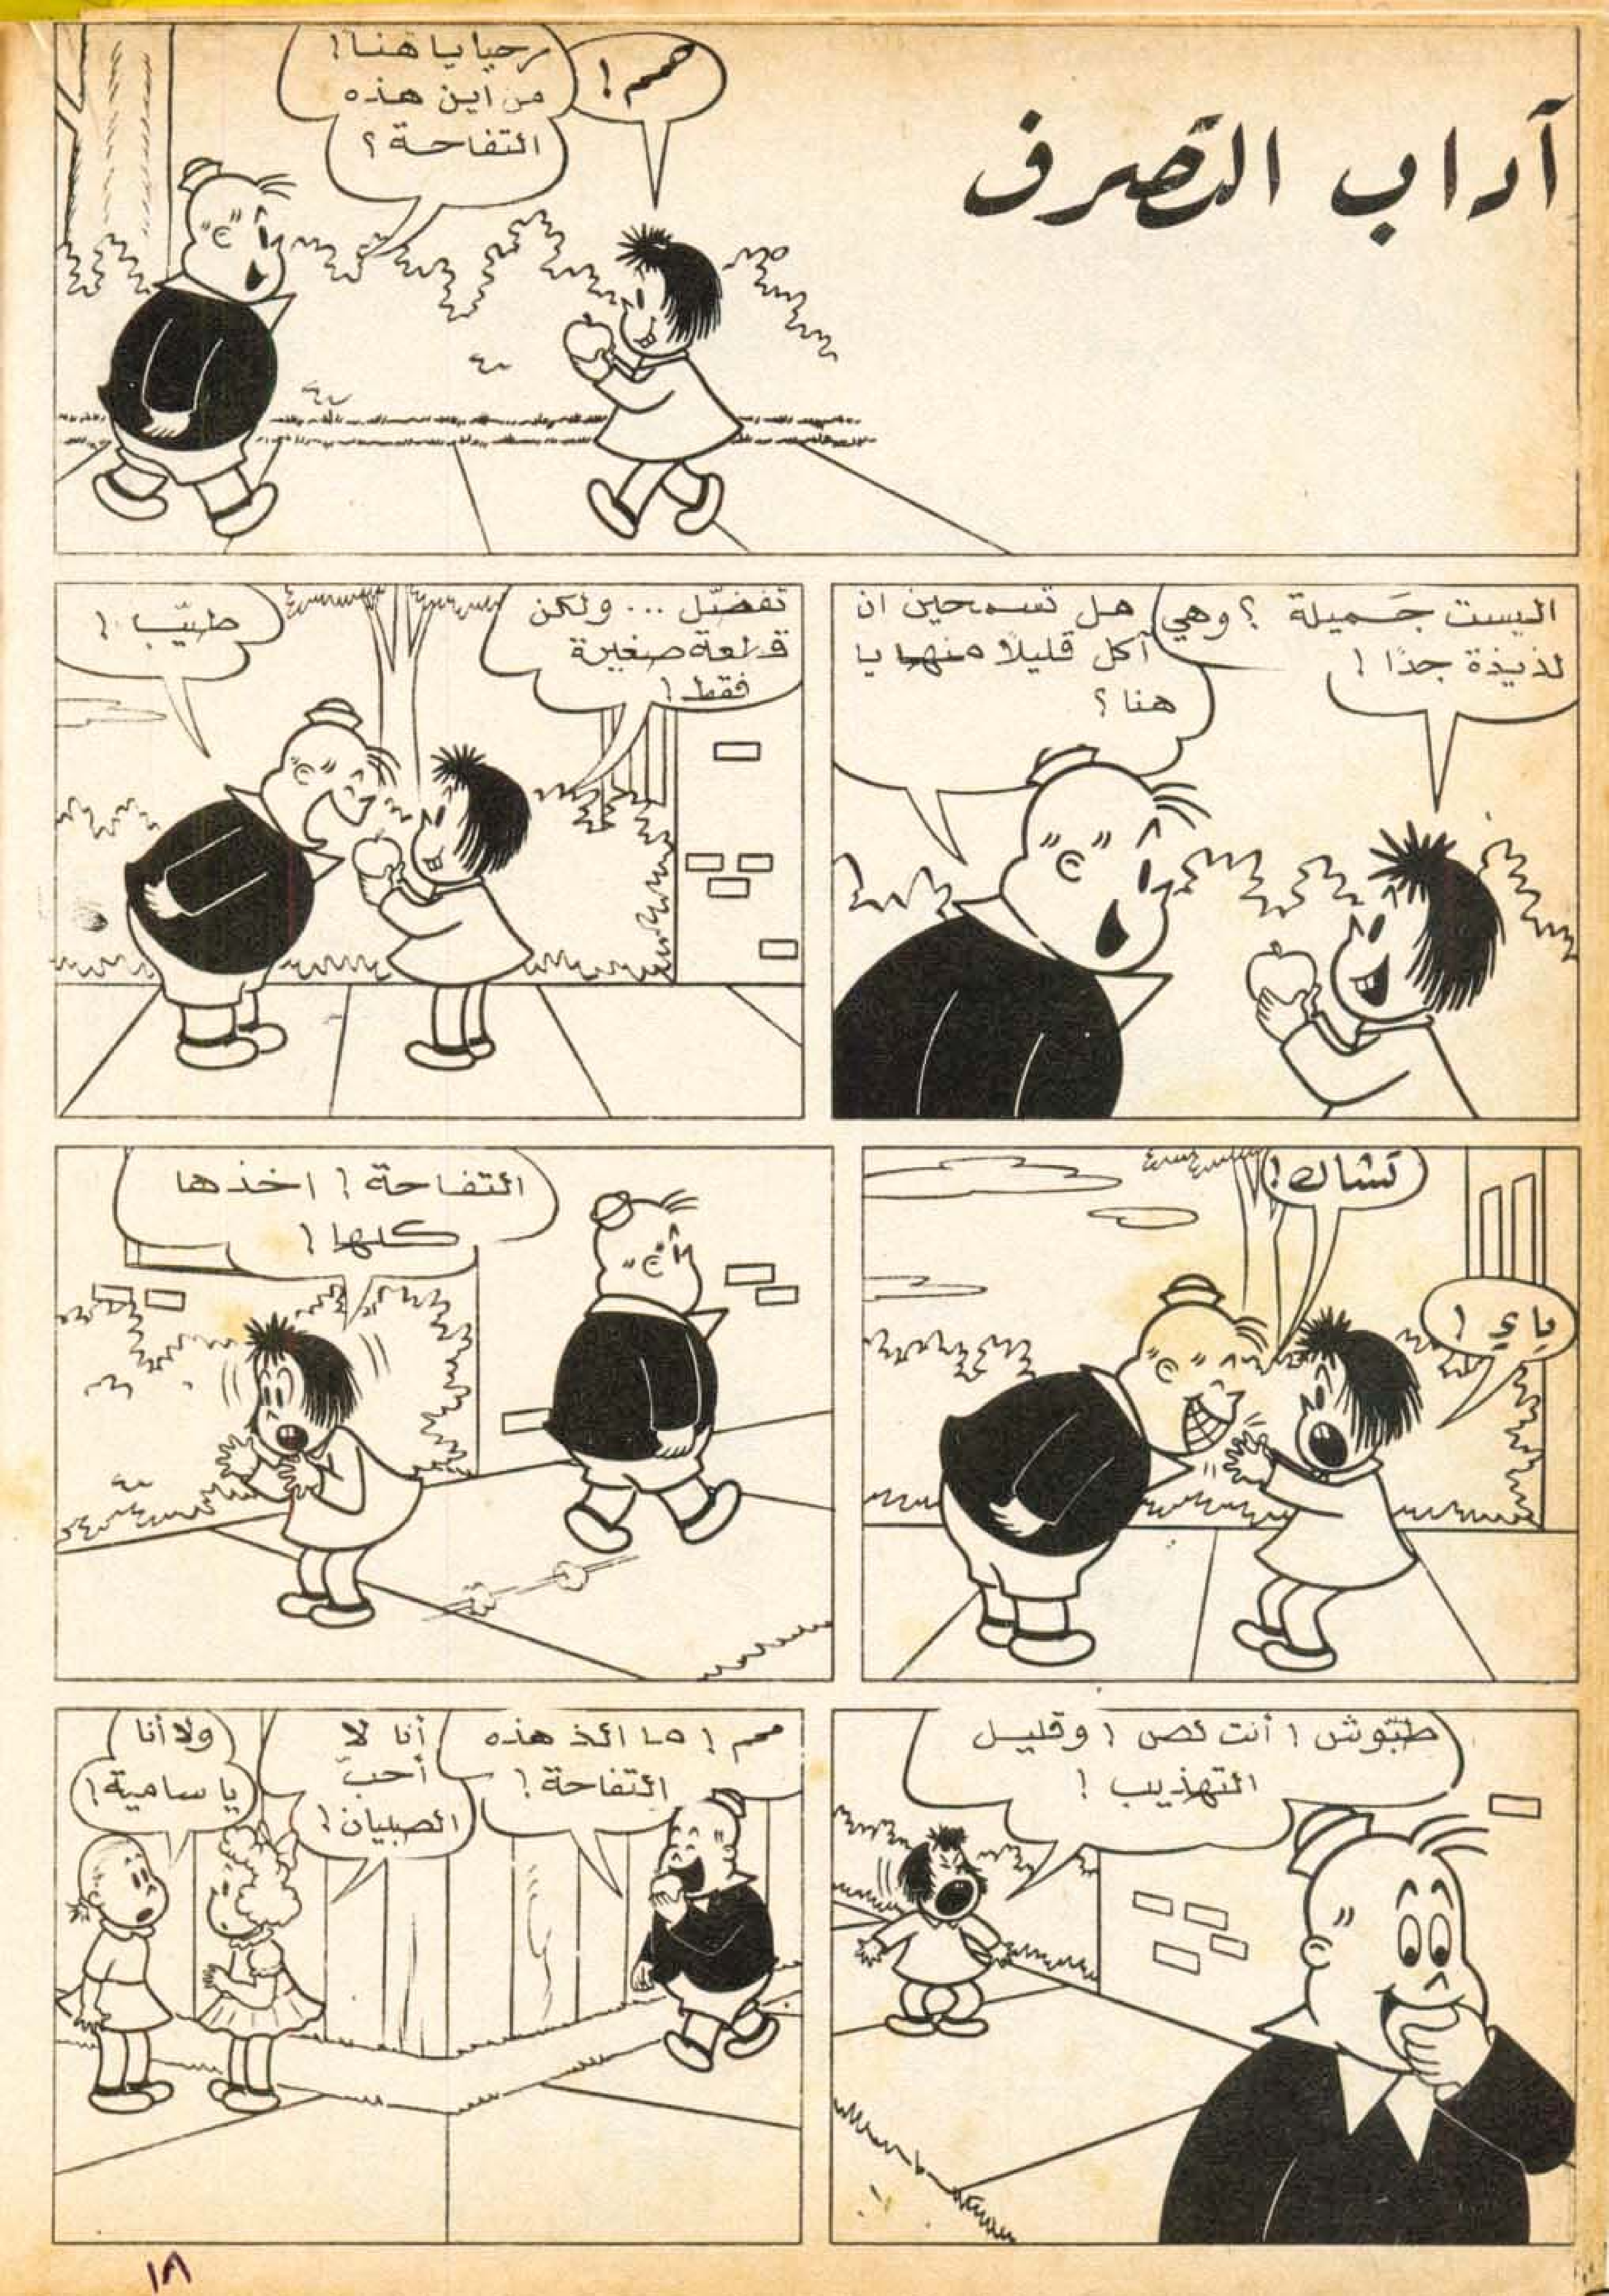 آداب التصرف
همم !
مرحبا يا هنا !
من اين هذه
التفاحة ؟
اليست جَميلة ؟ وهي
لذيذة جدًا !
هل تسمحين ان
آكل قليلا منها يا
هنا ؟
تفضّل ... ولكن
قطعة صغيرة
فقط !
طيّب !
تشاك !
ياي !
التفاحة ! اخذها
كلها !
طبّوش ! أنت لص ! وقليل
التهذيب !
ممم ! ما الذ هذه
التفاحة !
أنا لا
أحبّ
الصبيان !
ولا أنا
يا سامية !
١٨